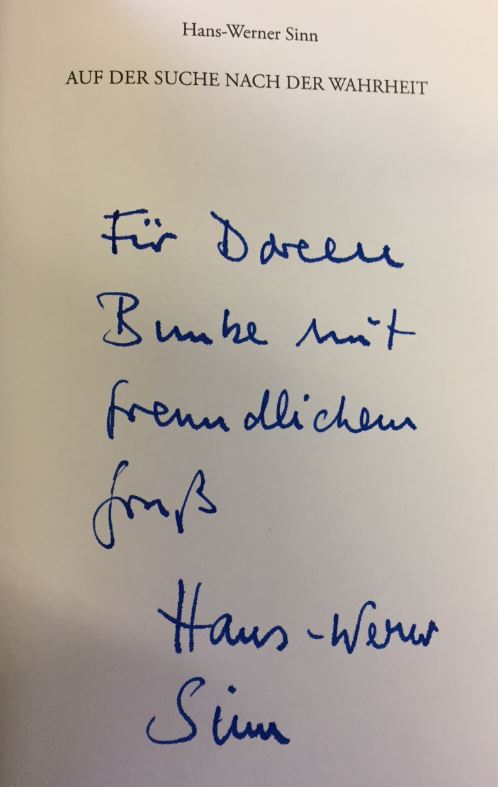 Hans-Werner Sinn
AUF DER SUCHE NACH DER WAHRHEIT
Für Doreen
Bunke mit
freundlichem
Gruß
Hans-Werner
Sinn